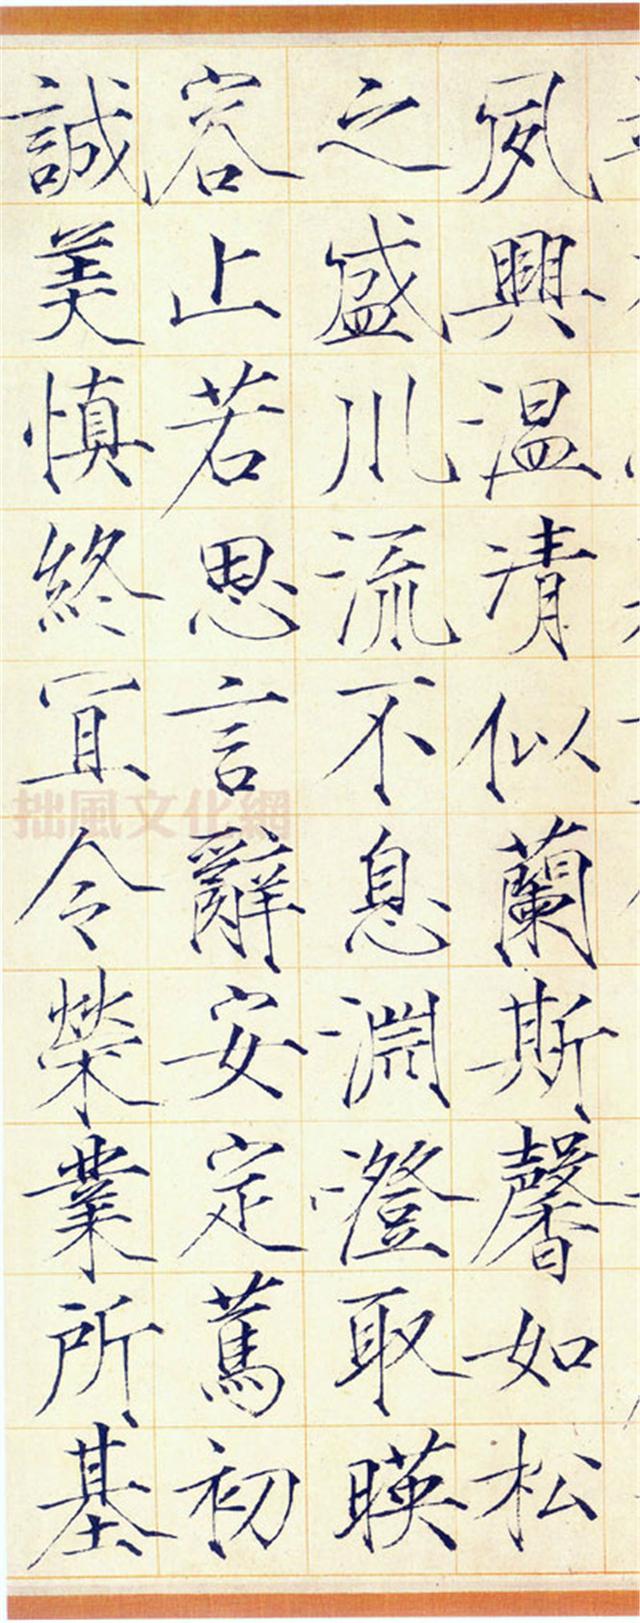 夙興温清似蘭斯馨如松
之盛川流不息淵澄取暎
容止若思言辭安定篤初
誠美慎終宜令榮業所基
拙風文化網